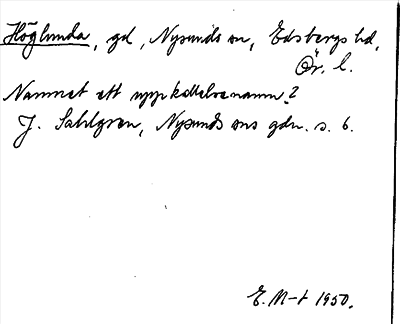 Höglunda, gd, Nysunds sn, Edsbergs hd,
Ör. l.
Namnet ett uppkallelsenamn?
J. Sahlgren, Nysunds sns gdn. s. 6.
E. M-t 1950.